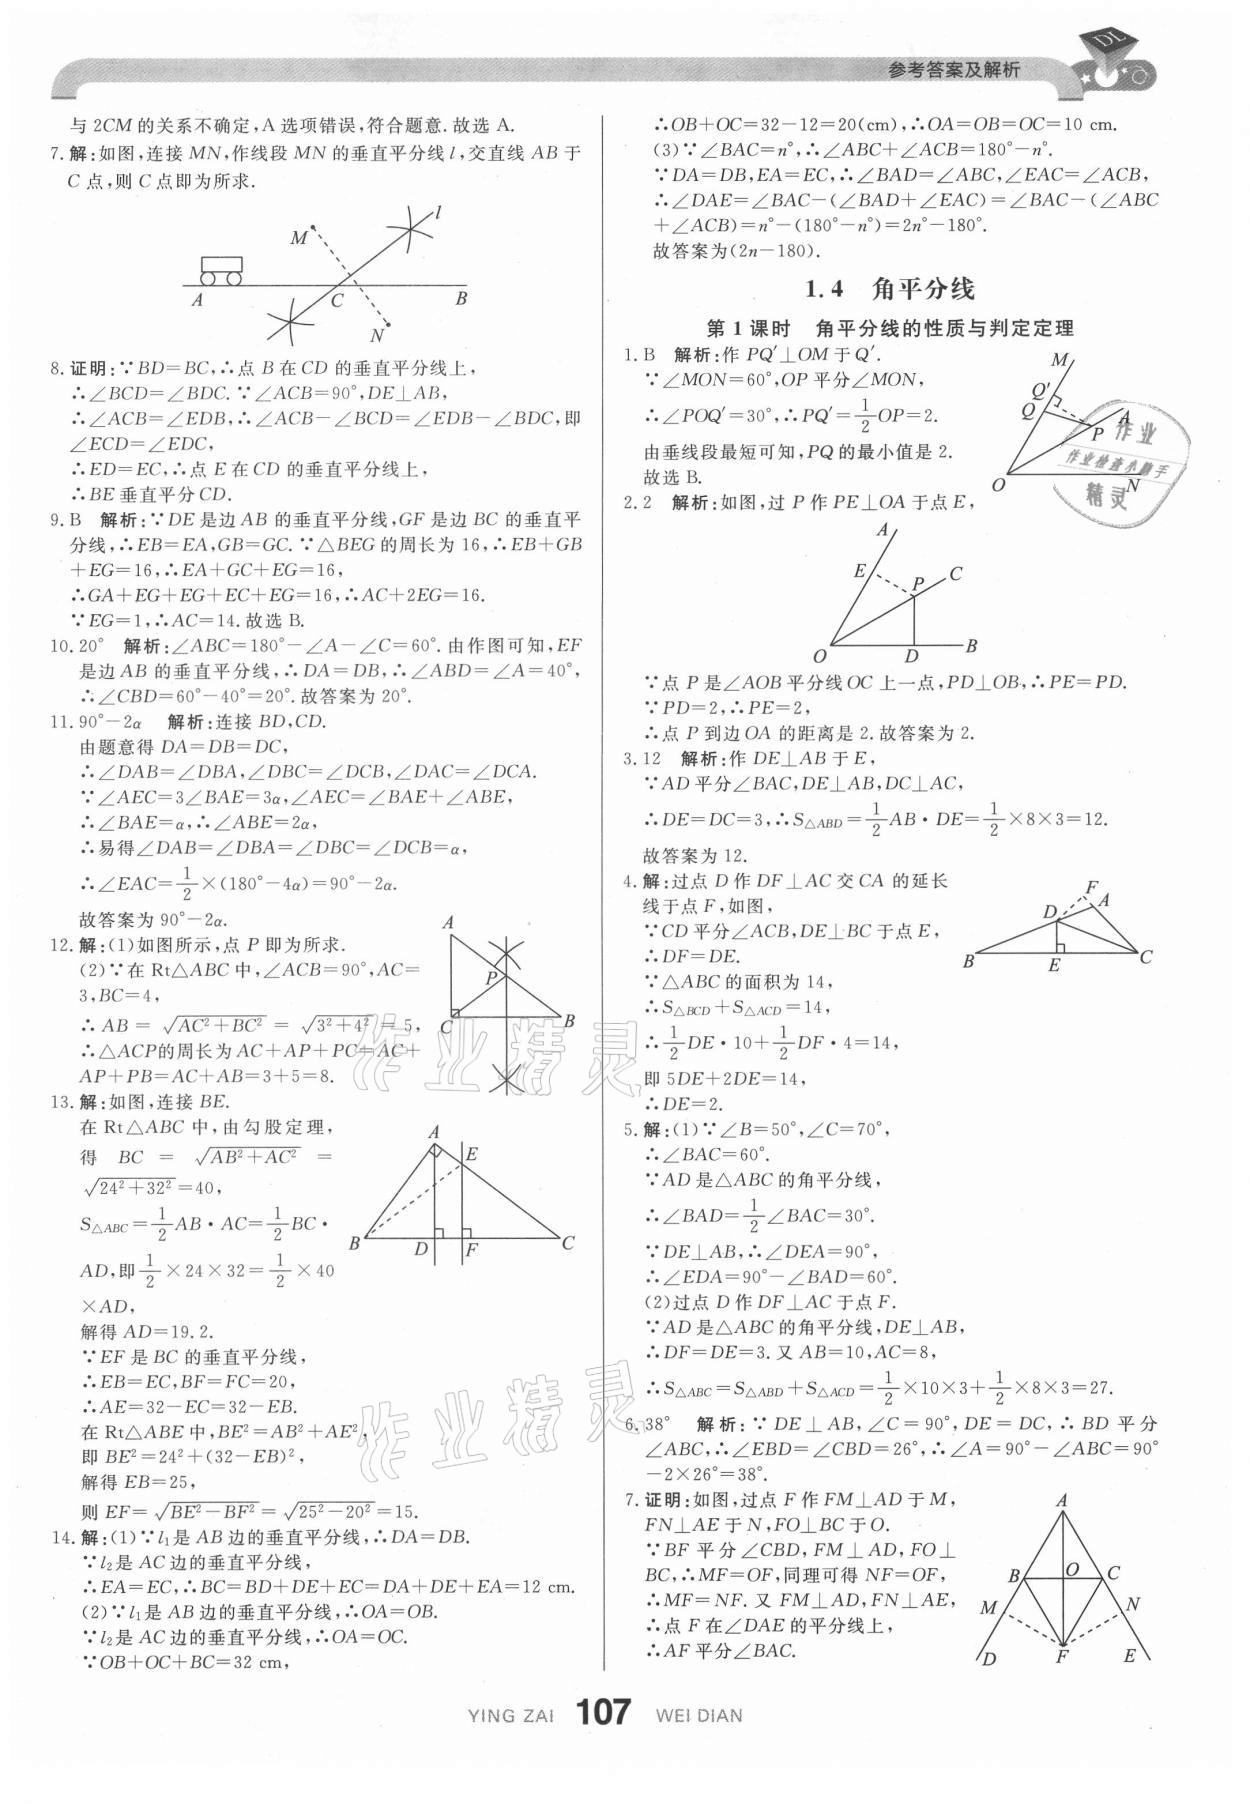 参考答案及解析
DL
与 2CM 的关系不确定,A 选项错误,符合题意.故选 A.
7.解:如图,连接 MN,作线段 MN 的垂直平分线 l,交直线 AB 于
C 点,则 C 点即为所求.
l
M
A
C
B
N
8.证明:∵BD=BC,∴点 B 在 CD 的垂直平分线上,
∴∠BCD=∠BDC.∵∠ACB=90°,DE⊥AB,
∴∠ACB=∠EDB,∴∠ACB-∠BCD=∠EDB-∠BDC,即
∠ECD=∠EDC,
∴ED=EC,∴点 E 在 CD 的垂直平分线上,
∴BE 垂直平分 CD.
9.B 解析:∵DE 是边 AB 的垂直平分线,GF 是边 BC 的垂直平
分线,∴EB=EA,GB=GC.∵△BEG 的周长为 16,∴EB+GB
+EG=16,∴EA+GC+EG=16,
∴GA+EG+EG+EC+EG=16,∴AC+2EG=16.
∵EG=1,∴AC=14.故选 B.
10.20° 解析:∠ABC=180°-∠A-∠C=60°.由作图可知,EF
是边 AB 的垂直平分线,∴DA=DB,∴∠ABD=∠A=40°,
∴∠CBD=60°-40°=20°.故答案为 20°.
11.90°-2α 解析:连接 BD,CD.
由题意得 DA=DB=DC,
∴∠DAB=∠DBA,∠DBC=∠DCB,∠DAC=∠DCA.
∵∠AEC=3∠BAE=3α,∠AEC=∠BAE+∠ABE,
∴∠BAE=α,∴∠ABE=2α,
∴易得∠DAB=∠DBA=∠DBC=∠DCB=α,
∴∠EAC=1/2×(180°-4α)=90°-2α.
故答案为 90°-2α.
12.解:(1)如图所示,点 P 即为所求.
(2)∵在 Rt△ABC 中,∠ACB=90°,AC=
3,BC=4,
∴AB=√(AC²+BC²)=√(3²+4²)=5,
∴△ACP的周长为 AC+AP+PC=AC+
AP+PB=AC+AB=3+5=8.
A
P
C
B
13.解:如图,连接 BE.
在 Rt△ABC 中,由勾股定理,
得 BC=√(AB²+AC²)=
√(24²+32²)=40,
S△ABC=1/2AB·AC=1/2BC·
AD,即1/2×24×32=1/2×40
×AD,
解得 AD=19.2.
∵EF 是 BC 的垂直平分线,
∴EB=EC,BF=FC=20,
∴AE=32-EC=32-EB.
在 Rt△ABE 中,BE²=AB²+AE²,
即 BE²=24²+(32-EB)²,
解得 EB=25,
则 EF=√(BE²-BF²)=√(25²-20²)=15.
A
E
B
D
F
C
14.解:(1)∵l₁是 AB 边的垂直平分线,∴DA=DB.
∵l₂是 AC 边的垂直平分线,
∴EA=EC,∴BC=BD+DE+EC=DA+DE+EA=12 cm.
(2)∵l₁是 AB 边的垂直平分线,∴OA=OB.
∵l₂是 AC 边的垂直平分线,∴OA=OC.
∵OB+OC+BC=32 cm,
∴OB+OC=32-12=20(cm),∴OA=OB=OC=10 cm.
(3)∵∠BAC=n°,∴∠ABC+∠ACB=180°-n°.
∵DA=DB,EA=EC,∴∠BAD=∠ABC,∠EAC=∠ACB,
∴∠DAE=∠BAC-(∠BAD+∠EAC)=∠BAC-(∠ABC
+∠ACB)=n°-(180°-n°)=2n°-180°.
故答案为(2n-180).
1.4 角平分线
第 1 课时 角平分线的性质与判定定理
1.B 解析:作 PQ′⊥OM 于 Q′.
∵∠MON=60°,OP 平分∠MON,
∴∠POQ′=30°,∴PQ′=1/2OP=2.
由垂线段最短可知,PQ 的最小值是 2.
故选 B.
M
Q′
Q
A
P
O
N
作业
作业检查小助手
精灵
2.2 解析:如图,过 P 作 PE⊥OA 于点 E,
A
E
P
C
O
D
B
∵点 P 是∠AOB 平分线 OC 上一点,PD⊥OB,∴PE=PD.
∵PD=2,∴PE=2,
∴点 P 到边 OA 的距离是 2.故答案为 2.
3.12 解析:作 DE⊥AB 于 E,
∵AD 平分∠BAC,DE⊥AB,DC⊥AC,
∴DE=DC=3,∴S△ABD=1/2AB·DE=1/2×8×3=12.
故答案为 12.
4.解:过点 D 作 DF⊥AC 交 CA 的延长
线于点 F,如图,
∵CD 平分∠ACB,DE⊥BC 于点 E,
∴DF=DE.
∵△ABC 的面积为 14,
∴S△BCD+S△ACD=14,
∴1/2DE·10+1/2DF·4=14,
即 5DE+2DE=14,
∴DE=2.
F
D
A
B
E
C
5.解:(1)∵∠B=50°,∠C=70°,
∴∠BAC=60°.
∵AD 是△ABC 的角平分线,
∴∠BAD=1/2∠BAC=30°.
∵DE⊥AB,∴∠DEA=90°,
∴∠EDA=90°-∠BAD=60°.
(2)过点 D 作 DF⊥AC 于点 F.
∵AD 是△ABC 的角平分线,DE⊥AB,
∴DF=DE=3.又 AB=10,AC=8,
∴S△ABC=S△ABD+S△ACD=1/2×10×3+1/2×8×3=27.
6.38° 解析:∵DE⊥AB,∠C=90°,DE=DC,∴BD 平分
∠ABC,∴∠EBD=∠CBD=26°,∴∠A=90°-∠ABC=90°
-2×26°=38°.
7.证明:如图,过点 F 作 FM⊥AD 于 M,
FN⊥AE 于 N,FO⊥BC 于 O.
∵BF 平分∠CBD,FM⊥AD,FO⊥
BC,∴MF=OF,同理可得 NF=OF,
∴MF=NF.又 FM⊥AD,FN⊥AE,
∴点 F 在∠DAE 的平分线上,
∴AF 平分∠BAC.
A
B
O
C
M
N
D
F
E
作业精灵
作业精灵
YING ZAI 107 WEI DIAN